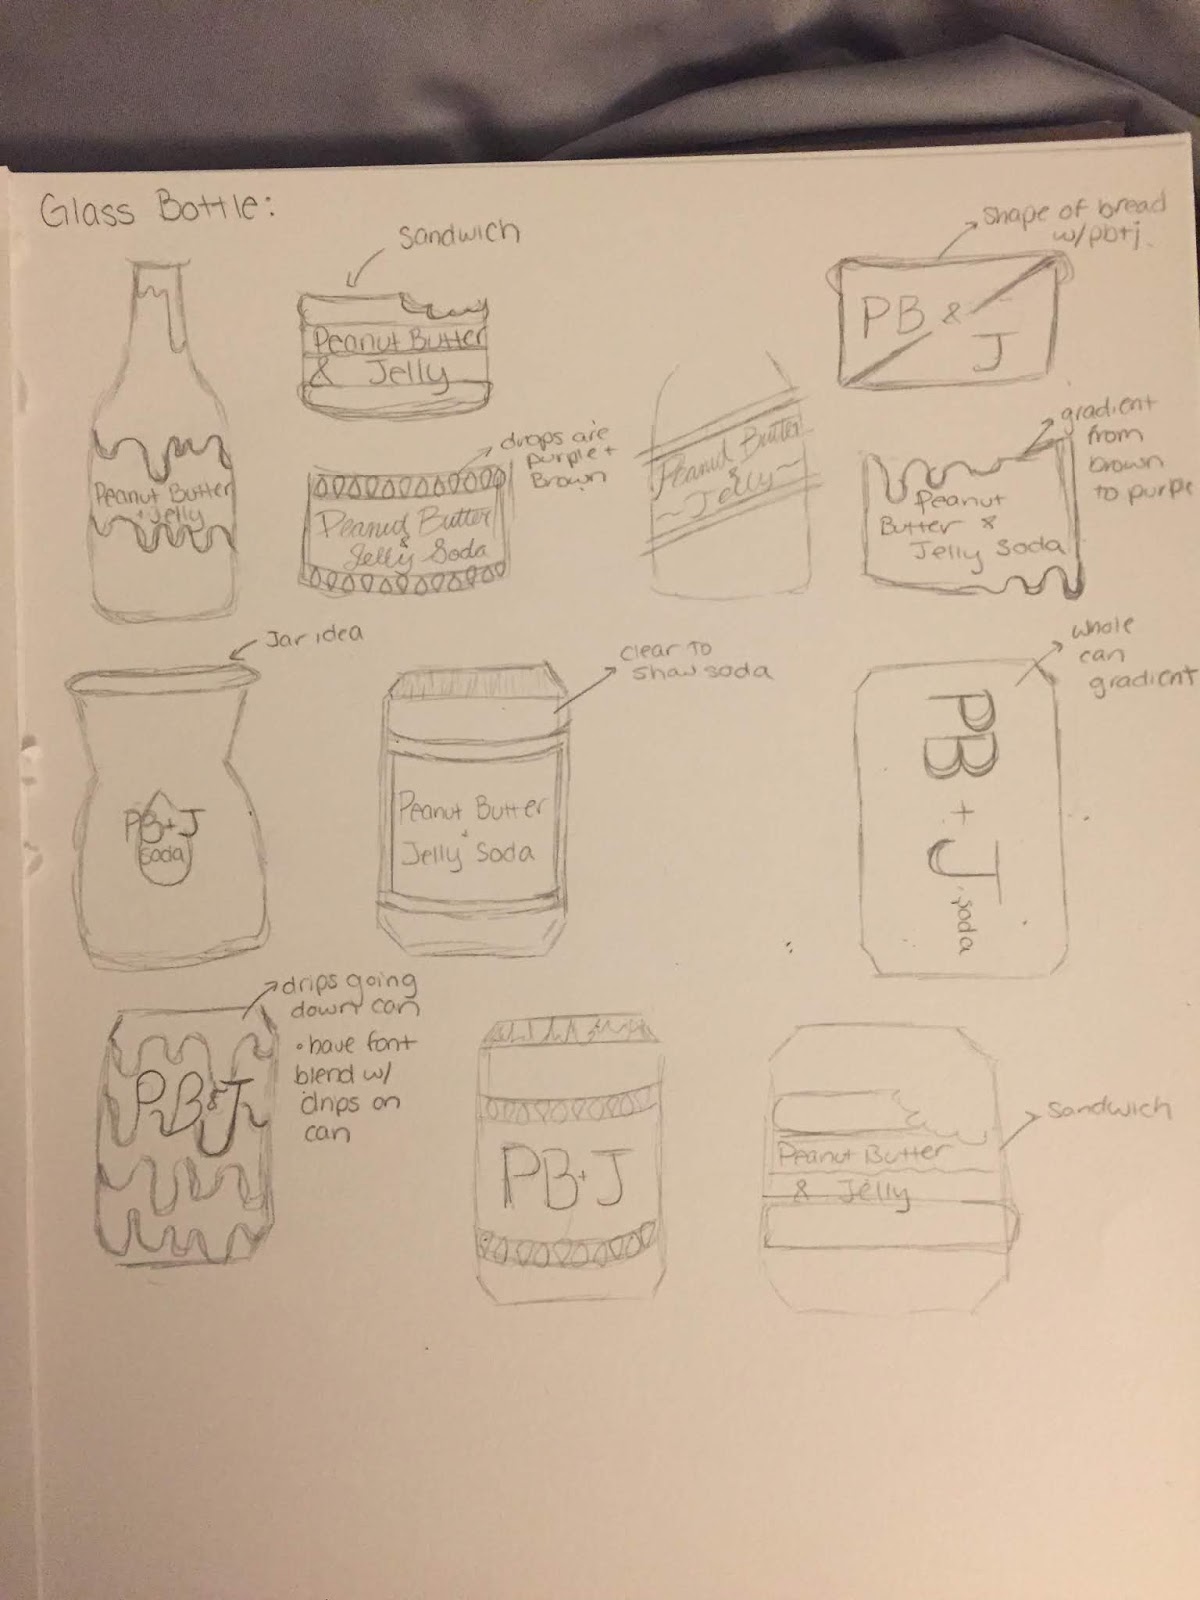 Glass Bottle:
Sandwich
shape of bread
w/pb+j.
Peanut Butter
+ Jelly
Peanut Butter
& Jelly
PB &
J
drops are
purple +
Brown
Peanut Butter
&
Jelly Soda
Peanut Butter
&
~Jelly~
gradient
from
brown
to purple
Peanut
Butter &
Jelly Soda
Jar idea
PB+J
soda
clear to
show soda
Peanut Butter
+
Jelly Soda
whole
can
gradient
PB + J soda
drips going
down can
• have font
blend w/
drips on
can
PB&J
PB+J
Sandwich
Peanut Butter
& Jelly